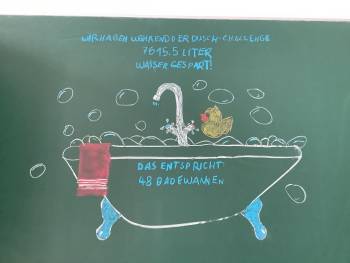 WIR HABEN WÄHREND DER DUSCH-CHALLENGE
7615.5 LITER
WASSER GESPART!
DAS ENTSPRICHT
48 BADEWANNEN